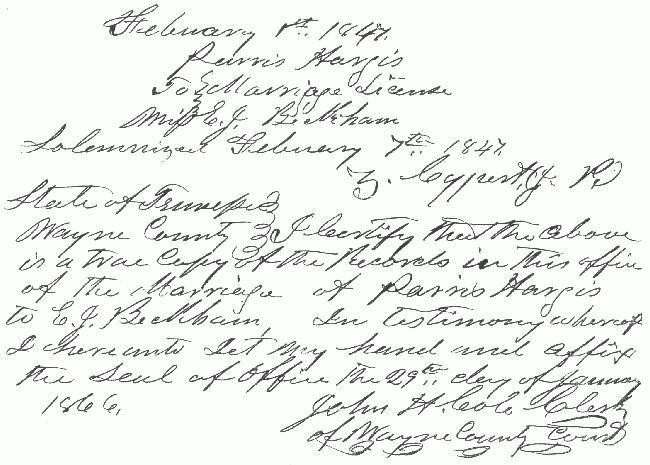 February 1st. 1847.
Parris Hargis
To } Marriage License
Miss E. J. Beckham
Solemnized February 7th. 1847.
Z. Cypert, J. P.
State of Tennessee }
Wayne County } I Certify that the above
is a true Copy of the Records in this office
of the Marriage of Parris Hargis
to E. J. Beckham, In testimony whereof
I hereunto Set my hand and affix
the Seal of Office the 29th. day of January
1866.
John H. Cole Clerk
of Wayne County Court